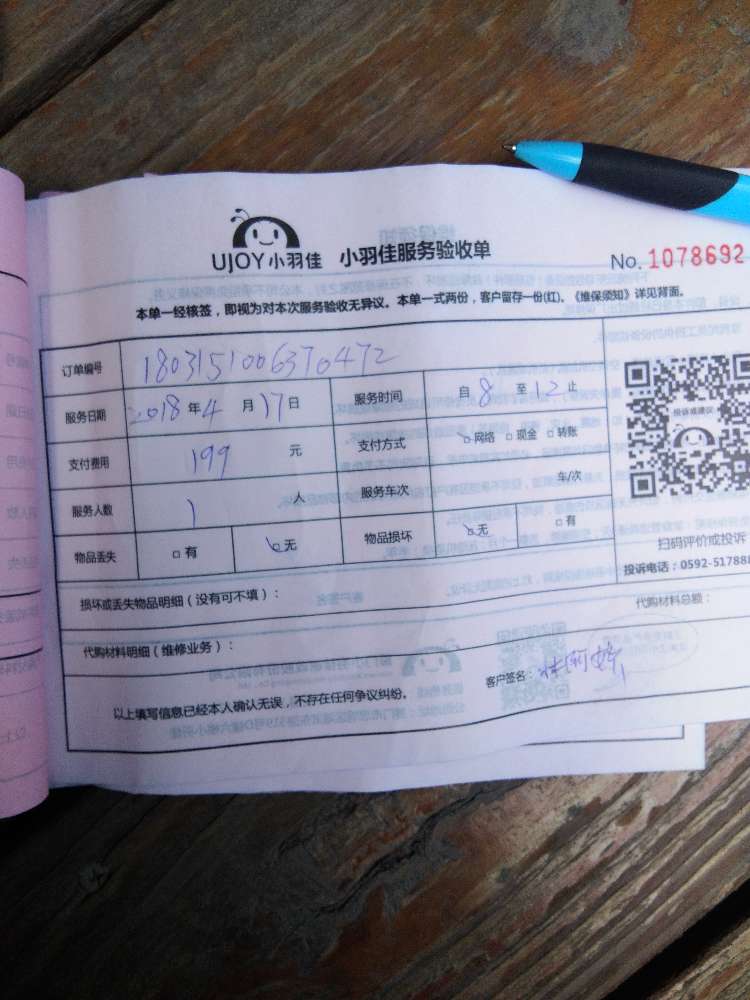 UJOY小羽佳 小羽佳服务验收单
No. 1078692
本单一经核签，即视为对本次服务验收无异议。本单一式两份，客户留存一份(红)、《维保须知》详见背面。
订单编号 1803151006370472
服务日期 2018年4月17日 服务时间 自8至12止
支付费用 199元 支付方式 网络 □现金 □转账
服务人数 1人 服务车次 车/次
物品丢失 □有 无 物品损坏 无 □有
投诉或建议
扫码评价或投诉
投诉电话：0592-517888
损坏或丢失物品明细（没有可不填）：
代购材料总额：
代购材料明细（维修业务）：
客户签名：
以上填写信息已经本人确认无误，不存在任何争议纠纷。